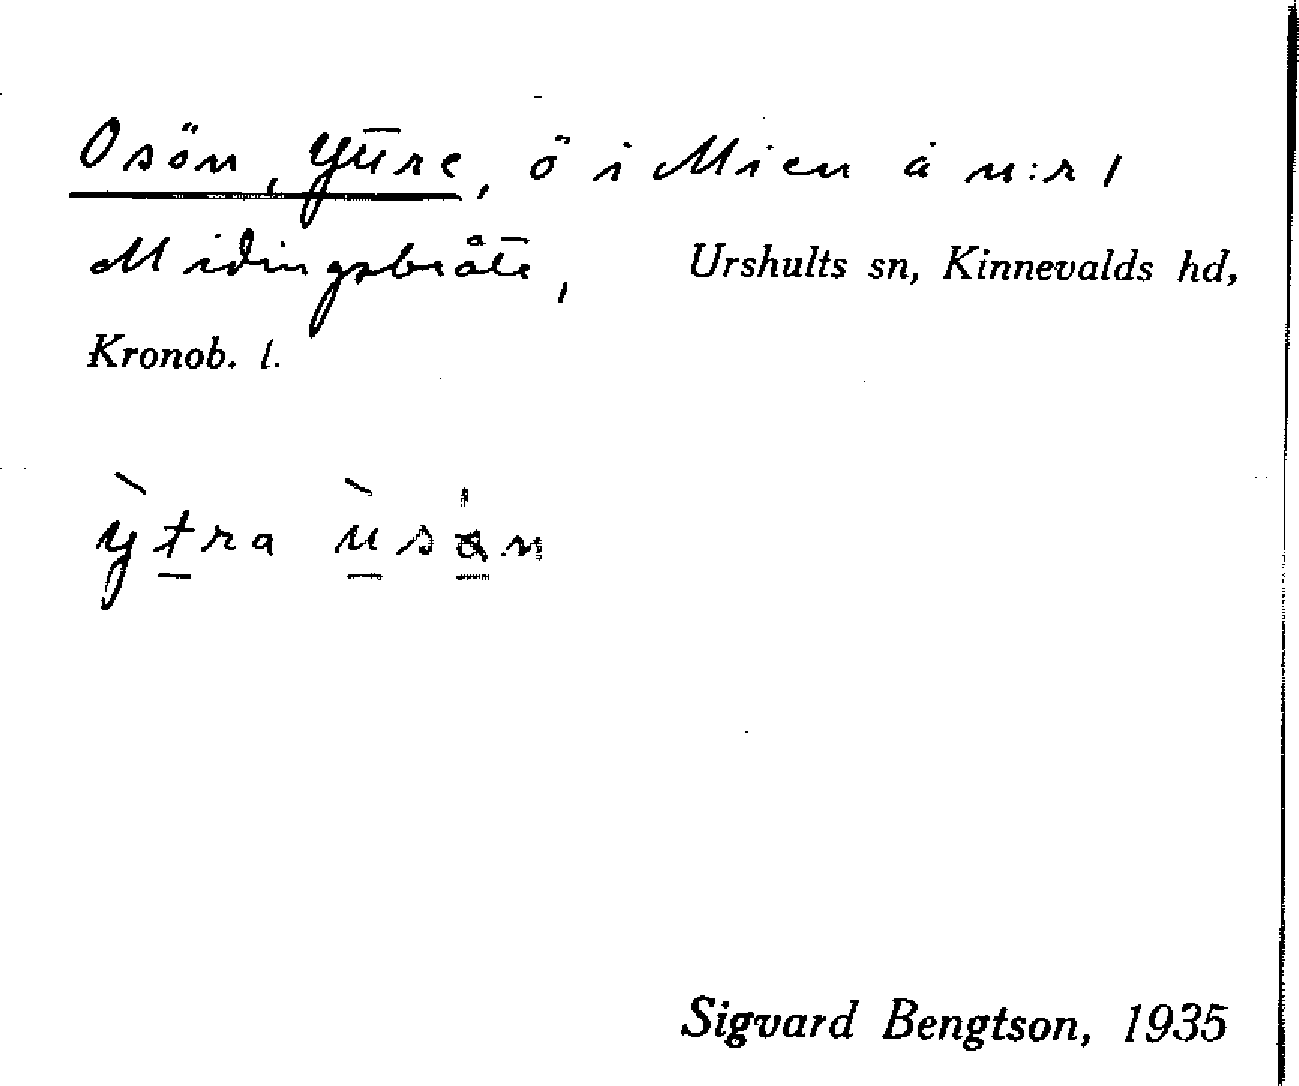 Osön, Yttre, ö i Mien å n:r 1
Midingsbråte, Urshults sn, Kinnevalds hd,
Kronob. l.
ỳt̲ra ù̲sa̲n
Sigvard Bengtson, 1935